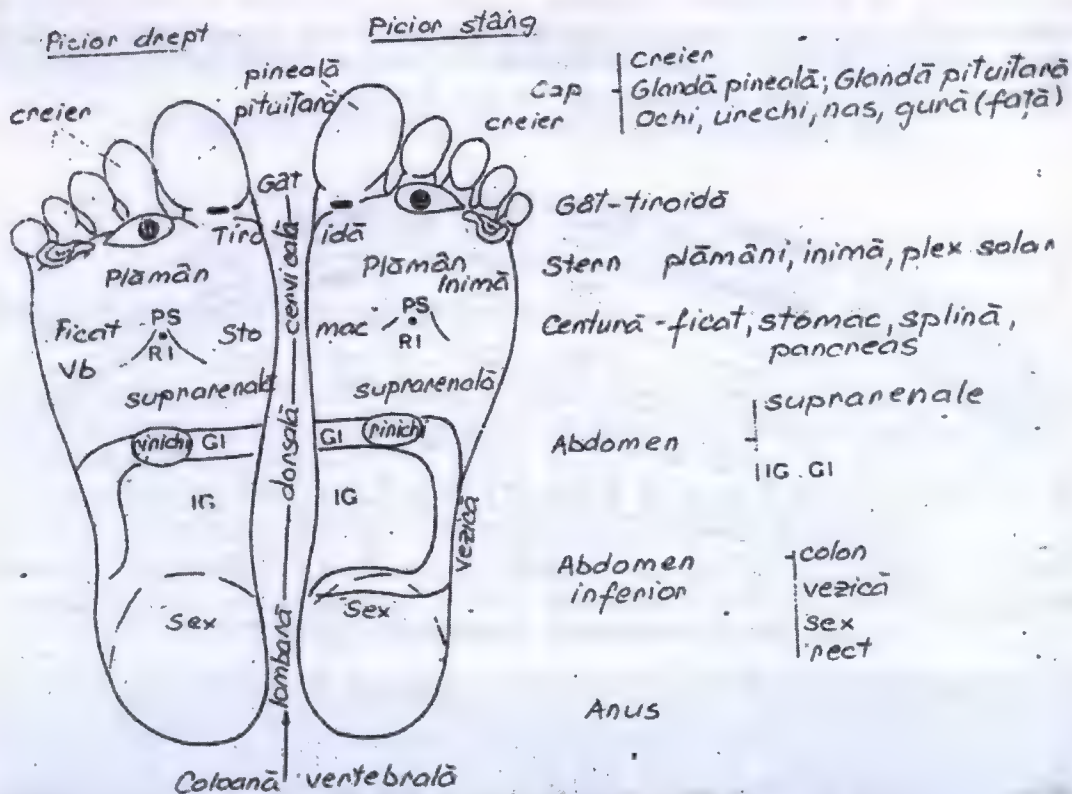 Picior drept
Picior stâng
pineală
pituitară
creier
creier
Gât
Tiro
idă
Plămân
Plămân
Inimă
Ficat
PS
RI
Sto
mac
PS
RI
Vb
suprarenală
suprarenală
rinichi
GI
GI
rinichi
IG
IG
vezică
Sex
Sex
cervicală
dorsală
lombară
Coloană vertebrală
Cap
Creier
Glandă pineală; Glandă pituitară
Ochi, urechi, nas, gură (față)
Gât-tiroidă
Stern plămâni, inimă, plex solar
Centură - ficat, stomac, splină,
pancreas
Abdomen
suprarenale
IG. GI
Abdomen
inferior
colon
vezică
sex
rect
Anus